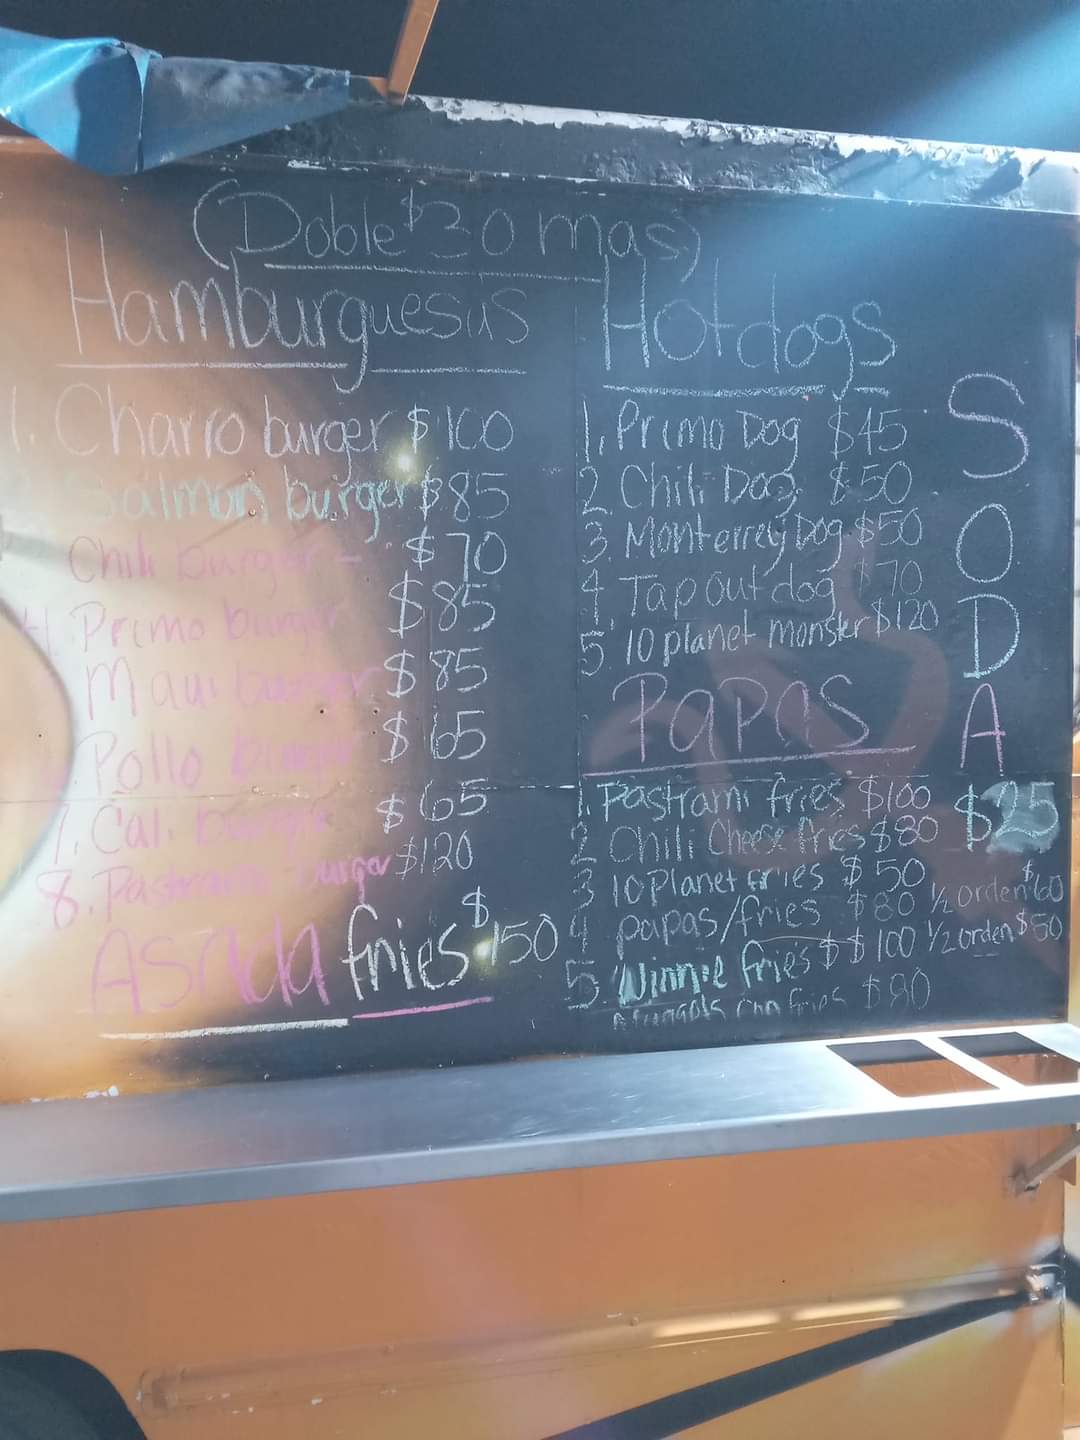 (Doble $30 mas)
Hamburguesas
1. Charro burger $100
Salmon burger $85
Chili burger - $70
4. Primo burger $85
Maui burger $85
Pollo burger $65
7. Cal. burger $65
8. Pastrami burger $120
Asada fries $150
Hotdogs
1. Primo Dog $45
2. Chili Dog $50
3. Monterrey Dog $50
4. Tap out dog $70
5. 10 planet monster $120
Papas
1. Pastrami fries $100
2 Chili Cheese fries $80
3 10 Planet fries $50
4 papas/fries $80 1/2 orden $60
5. Winnie fries $ $100 1/2 orden $50
fries $80
SODA
$25